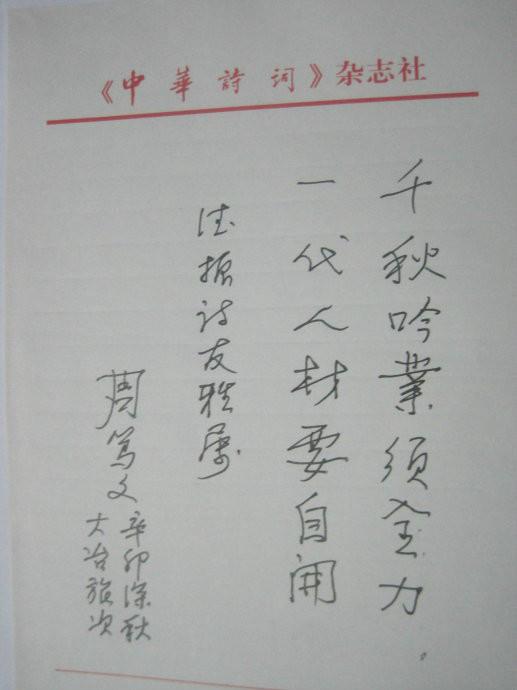 《中華詩词》杂志社
千秋吟業须全力
一代人材要自開
法振诗友雅属
周笃文
辛卯深秋
大冶旅次